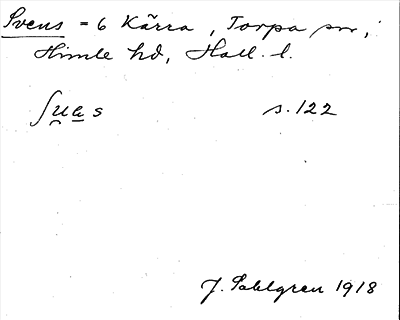 Svens = 6 Kärra, Torpa sn,
Himle hd, Hall. l.
ʃu̯a̲s s. 122
J. Sahlgren 1918